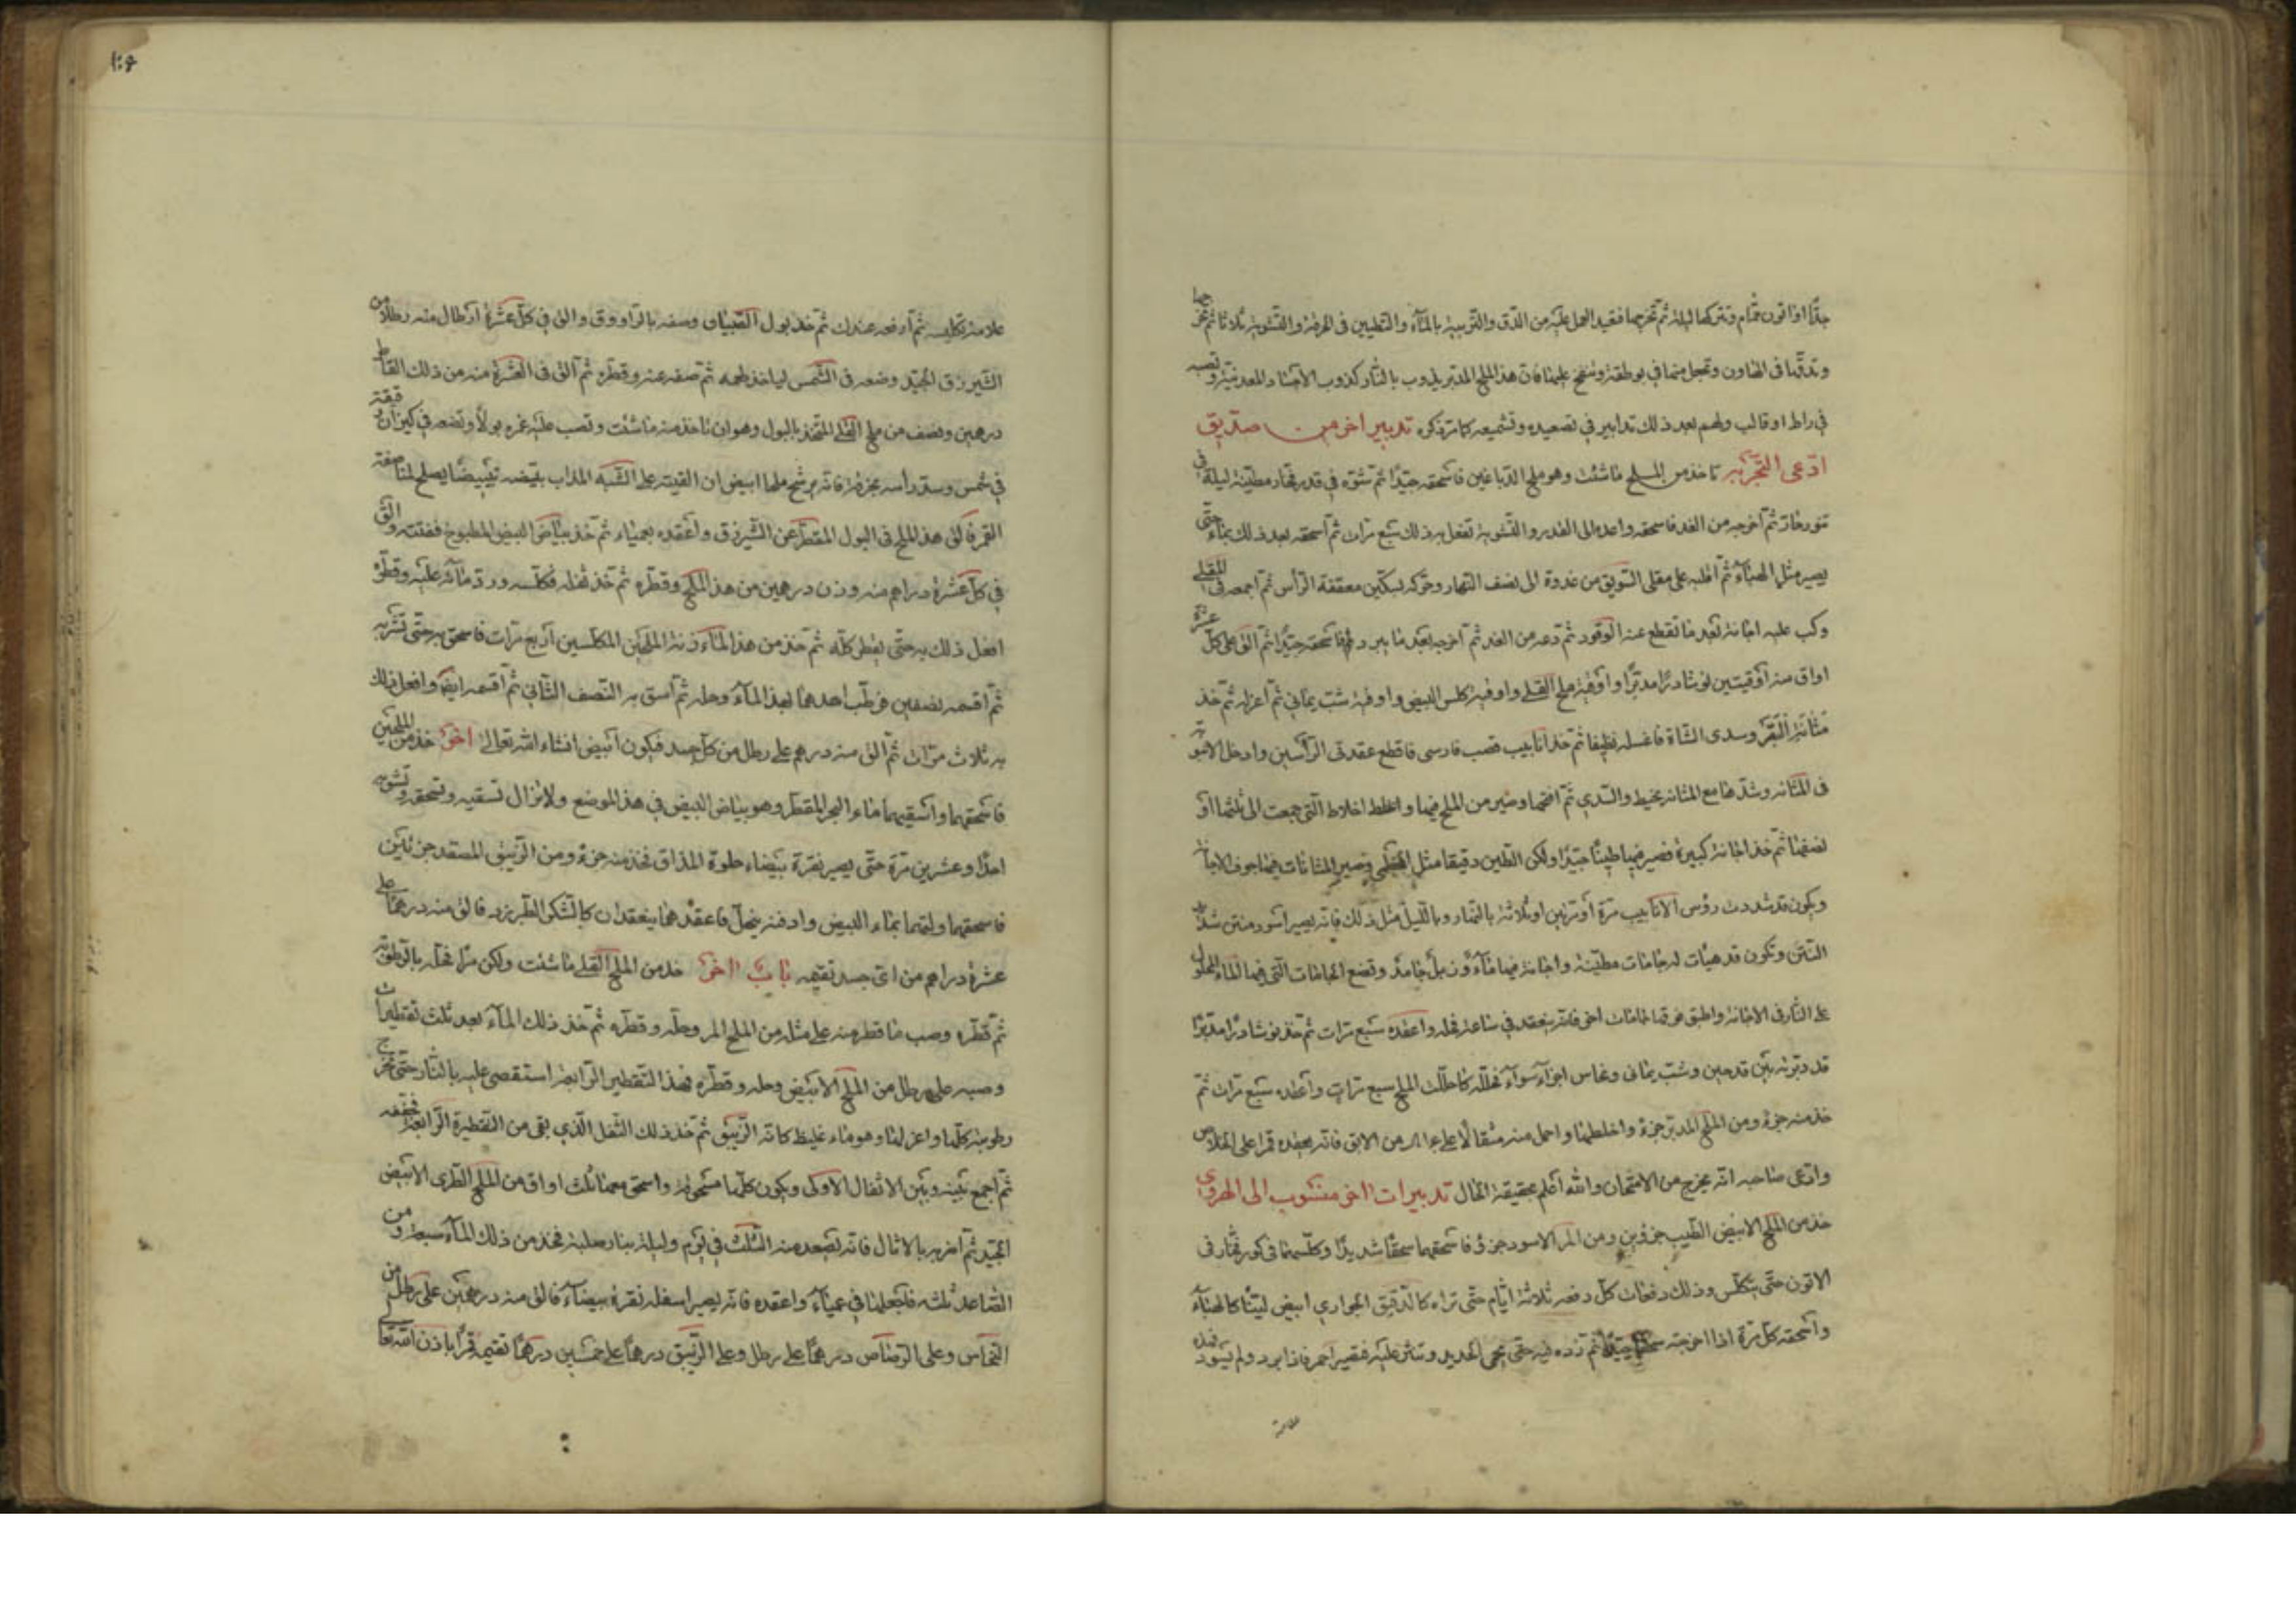 جدّا اذا اتون فحّام وتتركها ليلة ثم تخرجهما فتعيد العمل عليه من الدق والتربية بالماء والتطيين في الخرقة والتشوية ثلاثا ثم تخرجها
وتدقّها في الهاون وتجعل منها في بوطقة وتنفخ عليها فان هذا الملح المدبر يذوب بالنار كذوب الاجساد المعدنية وتصبه
في راط او قالب ولهم بعد ذلك تدابير في تصعيده وتشميعه كما مر ذكره تدبير اخر من صديق
ادّعى التجربة تاخذ من الملح ما شئت وهو ملح الدباغين فاسحقه جيدا ثم تشوه في قدر فخار مطينة ليلة في
تنور حار ثم اخرجه من الغد فاسحقه واعده الى القدر والتشوية تفعل به ذلك سبع مرات ثم اسحقه بعد ذلك بماء حتى
يصير مثل الهباء ثم اقلبه على مقلى السويق من غدوة الى نصف النهار وحركه بسكين معقفة الرأس ثم اجمعه في المقلى
وكب عليه اجانة بعد ما تقطع عنه الوقود ثم دعه من الغد ثم اخرجه بعد ما يبرد فاسحقه جيدا ثم الق على كل عشرة
اواق منه اوقيتين نوشادرا مدبرا واوقية ملح القلى واوقية كلس البيض واوقية شب يماني ثم اعزله ثم خذ
مثانة البقر وسدى الشاة فاغسله نظيفا ثم خذ انابيب قصب فارسي فاقطع عقدتي الرأسين وادخل الانبوبة
في المثانة وشدها مع المثانة بخيط والسدي ثم افتحها وصير من الملح فيها واخلط اخلاط التي جمعت الى ثلثها او
نصفها ثم خذ اجانة كبيرة فصير فيها طينا جيدا وليكن الطين دقيقا مثل الخطمي وتصير المثانات فيها جوف الاجانة
ويكون قد شددت رؤس الانابيب مرة او مرتين او ثلاثة بالنهار وبالليل مثل ذلك فانه يصير اسود منتن شديد
النتن وتكون قد هيأت له جامات مطينة واجانة فيها ماء ون بل جامد وتضع الجامات التي فيها الماء المحلول
على النار في الاجانة واطبق فوقها جامات اخر فانه ينعقد في ساعة فحله واعقده سبع مرات ثم خذ نوشادرا مدبرا
قد دبرته بين قدحين وشب يماني ونحاس اجزاء سواء فحلله كما حللت الملح سبع مرات واعقده سبع مرات ثم
خذ منه جزء ومن الملح المدبر جزء واخلطهما واحمل منه مثقالا على من الابق فانه يعقده قمرا على الخلاص
وادعى صاحبه انه يخرج من الامتحان والله اعلم بحقيقة الحال تدبيرات اخر منسوب الى الهروي
خذ من الملح الابيض الطيب جزؤين ومن المر الاسود جزؤ فاسحقهما سحقا شديدا وكلسهما في كور فخار في
الاتون حتى يتكلس وذلك دفعات كل دفعة ثلاثة ايام حتى تراه كالدقيق الحواري ابيض لينا كالهباء
واسحقه كل مرة اذا اخرجته سحقا جيدا ثم ترده فيه حتى يحمى الحديد وتنثر عليه فتصير احمر فاذا برد ولم يسود فهذه
علامة
علامة تكليسه ثم ارفعه عندك ثم خذ بول الصبيان وصفه بالراووق والق في كل عشرة ارطال منه رطلا من
الشيرزق الجيد وضعه في الشمس لياخذ طعمه ثم صفه عنه وقطره ثم الق في العشرة منه من ذلك القاطر
درهمين ونصف من ملح القلى المتخذ بالبول وهو ان تاخذ منه ما شئت وتصب عليه غمره بولا وتضعه في كيزان رقيقة
في شمس وسد رأسه بخرقة فانه يرشح ملحا ابيض ان القيته على الشبه المذاب بيضه تبييضا يصلح لمناصفة
القمر فالق هذا الملح في البول المقطر عن الشيرزق واعقده بعمياء ثم خذ بياض البيض المطبوخ ففتته والق
في كل عشرة دراهم منه وزن درهمين من هذا الملح وقطره ثم خذ ثفله فكلسه ورد ماءه عليه وقطره
افعل ذلك به حتى يقطر كله ثم خذ من هذا الماء زنة الملحين المكلسين اربع مرات فاسحق به حتى تشربه
ثم اقسمه نصفين فرطب احدهما بهذا الماء وحله ثم اسق به النصف الثاني ثم اقسمه ايضا وافعل ذلك
به ثلاث مرات ثم الق منه درهم على رطل من كل جسد فيكون ابيض انشاء الله تعالى اخر خذ من الملحين
فاسحقهما واسقيهما ماء الحجر المقطر وهو بياض البيض في هذا الموضع ولا تزال تسقيه وتسحقه وتشويه
احدا وعشرين مرة حتى يصير نقرة بيضاء حلوة المذاق فخذ منه جزء ومن الزيبق المستعد جزئين
فاسحقهما ولتهما بماء البيض وادفنه ينحل فاعقدهما ينعقدان كالسكر الطبرزد فالق منه درهما على
عشرة دراهم من اي جسد تقيمه باب اخر خذ من الملح القلى ما شئت وليكن مرا فحله بالرطوبة
ثم قطره وصب ما قطر منه على مثله من الملح المر وحله وقطره ثم خذ ذلك الماء بعد ثلث تقطيرات
وصبه على رطل من الملح الابيض وحله وقطره فهذا التقطير الرابعة استقصى عليه بالنار حتى تخرج
رطوبته كلها واعزلها وهو ماء غليظ كانه الزيبق ثم خذ ذلك الثفل الذي بقي من التقطيرة الرابعة فجففه
ثم اجمع بينه وبين الاثفال الاولى ويكون كلها مسحوقة واسحق معها ثلث اواق من الملح الطري الابيض
الجيد ثم اخر به بالاثال فانه يصعد منه الثلث في يوم وليلة بنار صلبة فخذ من ذلك الماء سبعة ومن
الصاعد ثلثه فاجعلها في عمياء واعقده فانه يصير اسفله نقرة بيضاء فالق منه درهمين على رطل من
النحاس وعلى الرصاص درهما على رطل وعلى الزيبق درهما على خمسين درهما تقيمه قمرا باذن الله تعالى